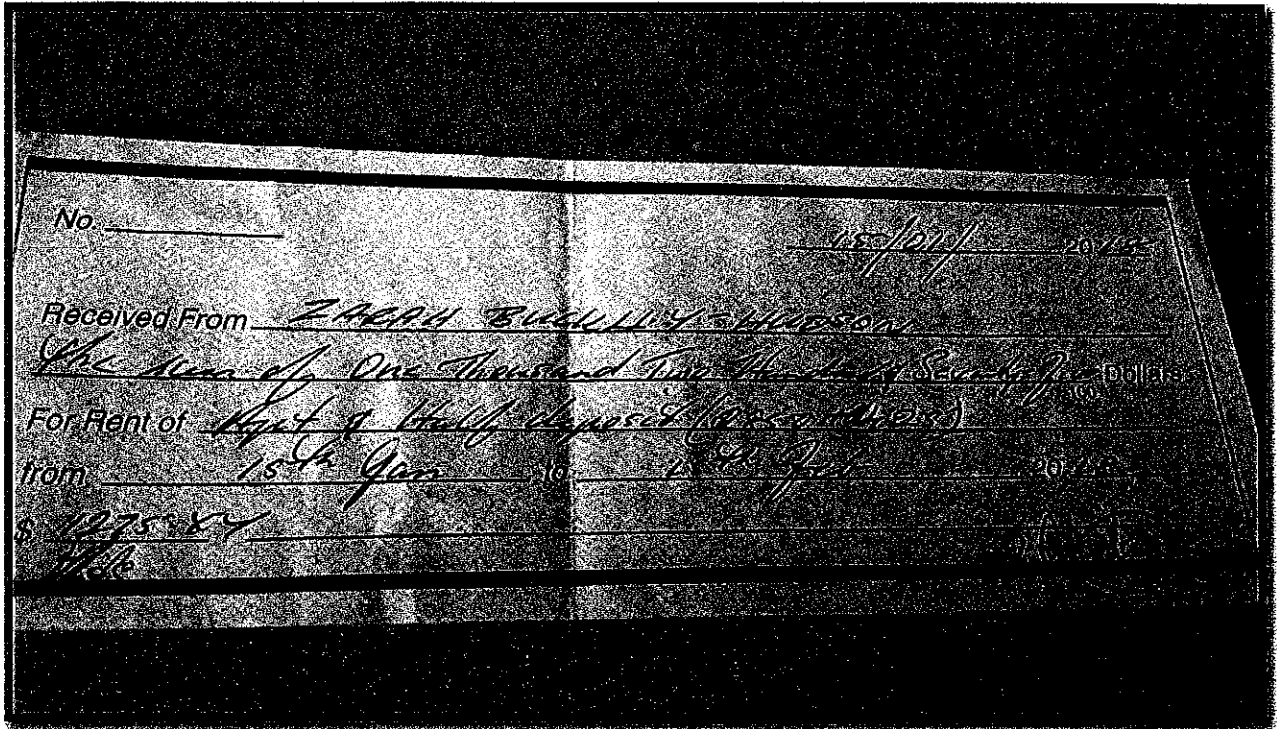 No.
15/01/ 20
Received From ZARAH BUCKLEY-HUDSON
The sum of One Thousand Two Hundred Seventy Dollars
For Rent of Rent & Half deposit
from 15th Jan to Feb 20
$ 1275.84